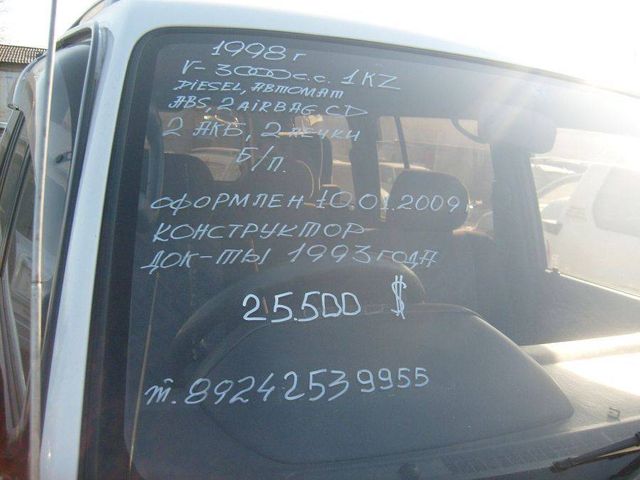 1998 г
V-3000 с.с. 1KZ
DIESEL, АВТОМАТ
ABS, 2 AIRBAG CD
2 АКБ, 2 ПЕЧКИ
Б/П.
ОФОРМЛЕН 10.01.2009г
КОНСТРУКТОР
ДОК-ТЫ 1993 ГОДА
25.500 $
т. 89242539955